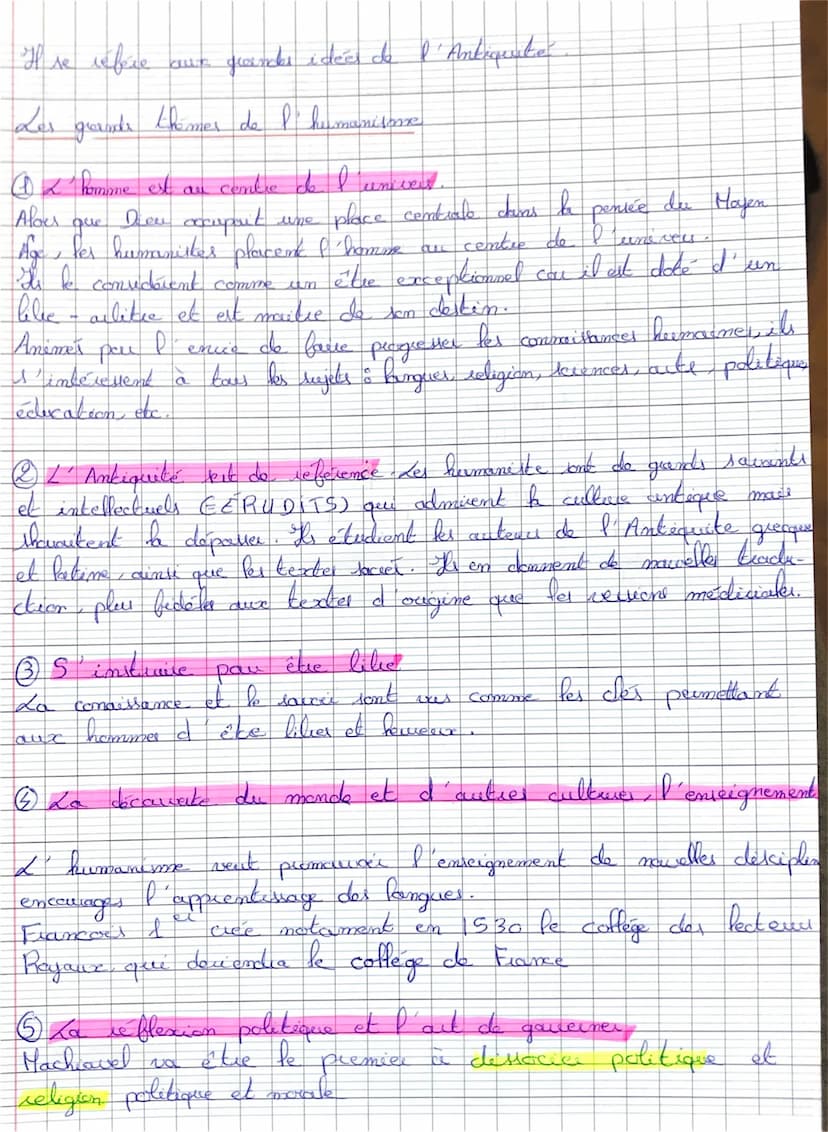 Il se réfère aux grandes idées de l'Antiquité.
Les grands thèmes de l'humanisme
① L'homme est au centre de l'univers.
Alors que Dieu occupait une place centrale dans la pensée du Moyen
Age, les humanistes placent l'homme au centre de l'univers.
Ils le considèrent comme un être exceptionnel car il est doté d'un
libre-arbitre et est maitre de son destin.
Animés par l'envie de faire progresser les connaissances humaines, ils
s'intéressent à tous les sujets : langues, religion, sciences, arts, politique,
éducation, etc.
② L'Antiquité sert de référence. Les humaniste sont de grands savants
et intellectuels (ÉRUDITS) qui admirent la culture antique mais
souhaitent la dépasser. Ils étudient les auteurs de l'Antiquité grecque
et latine, ainsi que les textes sacrés. Ils en donnent de nouvelles tradu-
ction, plus fidèles aux textes d'origine que les versions médiévales.
③ S'instruire pour être libre
La connaissance et le savoir sont vus comme les clés permettant
aux hommes d'être libres et heureux.
④ La découverte du monde et d'autres cultures, l'enseignement
L'humanisme veut promouvoir l'enseignement de nouvelles disciplin
encourages l'apprentissage des langues.
Francois 1er crée notament en 1530 le collège des lecteurs
Royaux, qui deviendra le collège de France
⑤ La réflexion politique et l'art de gouverner
Machiavel va être le premier à dissocier politique et
religion politique et morale